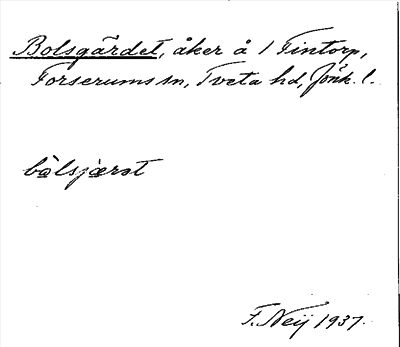 Bolsgärdet, åker å 1 Tintorp,
Forserums sn, Tveta hd, Jönk. l.
bòlsjærət
F. Neij 1937.